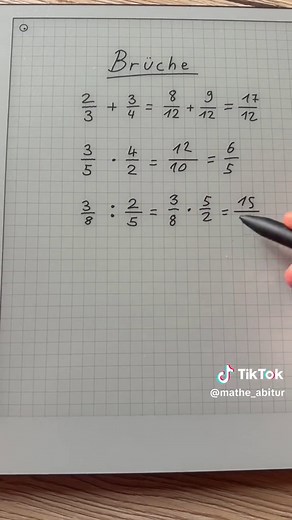 Brüche
2/3 + 3/4 = 8/12 + 9/12 = 17/12
3/5 · 4/2 = 12/10 = 6/5
3/8 : 2/5 = 3/8 · 5/2 = 15/
TikTok
@mathe_abitur